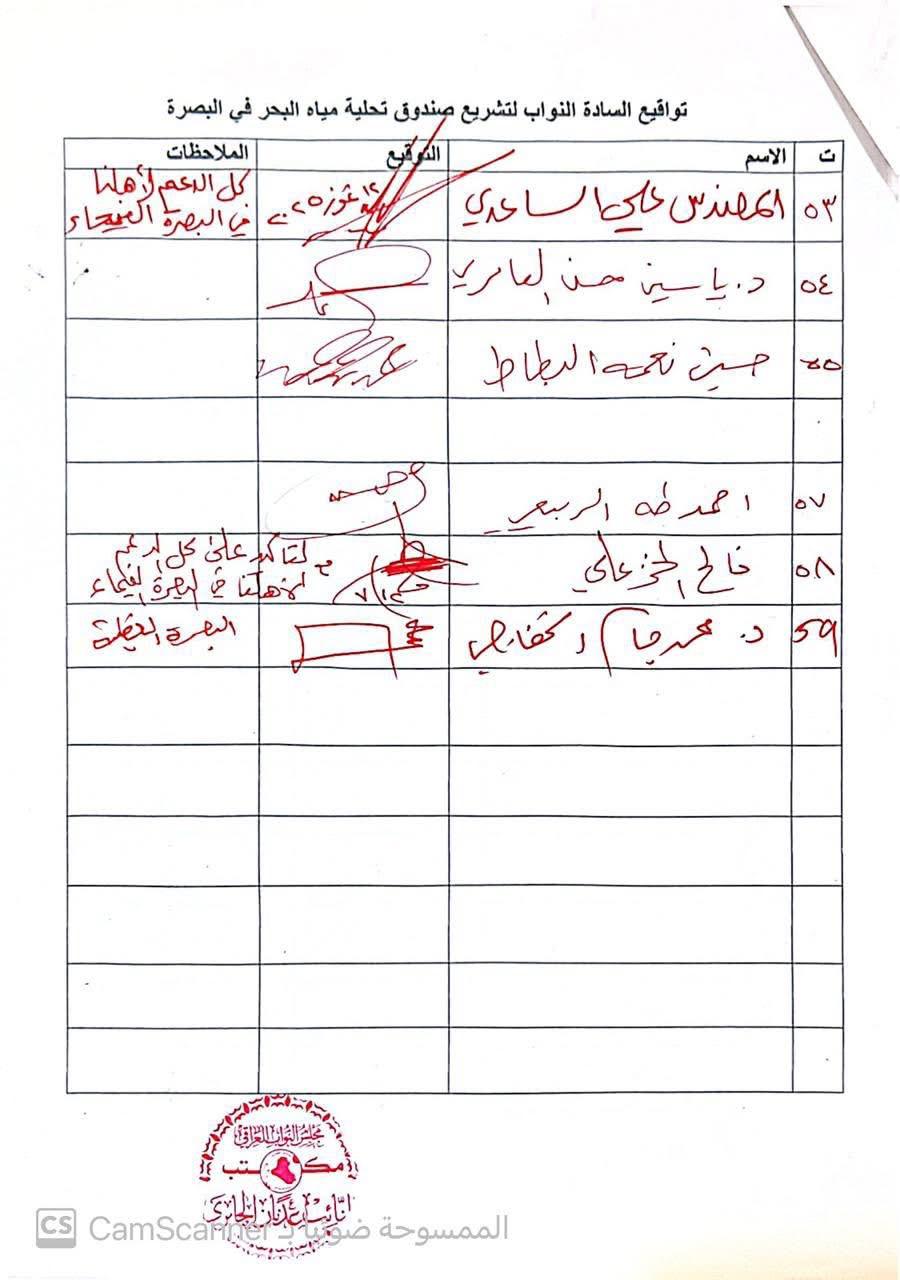 تواقيع السادة النواب لتشريع صندوق تحلية مياه البحر في البصرة
ت الاسم التوقيع الملاحظات
٥٣ المهندس علي الساعدي ١٢ تموز ٢٠٢٥ كل الدعم لأهلنا
في البصرة الفيحاء
٥٤ د. ياسين حسن العامري
٥٥ حسين نعمه البطاط
٥٧ احمد طه الربيعي
٥٨ فالح الخزعلي ٧/١٢ مع التأكيد على كل الدعم
لأهلنا في البصرة الفيحاء
٥٩ د. محمد جاسم الخفاجي البصرة العظيمة
مجلس النواب العراقي
مكتب
النائب عدنان الجابري
CS CamScanner الممسوحة ضوئيا بـ